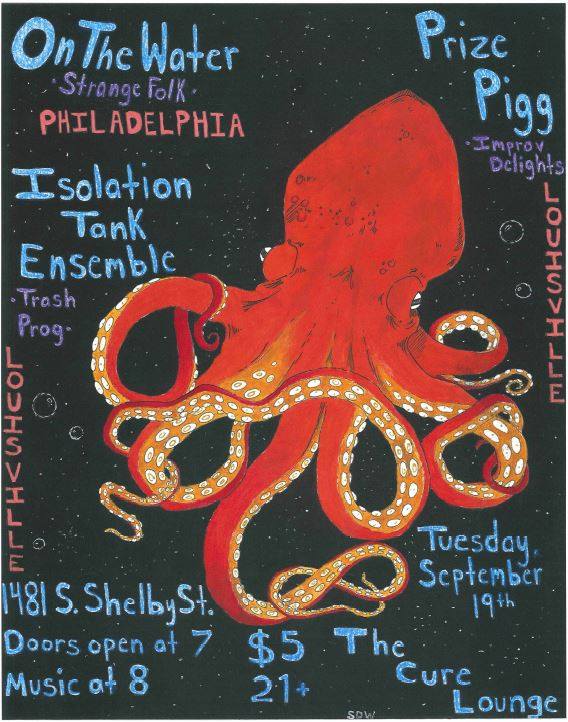 On The Water
·Strange Folk·
PHILADELPHIA
Prize
Pigg
·Improv
Delights
LOUISVILLE
Isolation
Tank
Ensemble
·Trash
Prog·
LOUISVILLE
Tuesday,
September
19th
1481 S. Shelby St.
Doors open at 7
Music at 8
$5
21+
The
Cure
Lounge
SDW